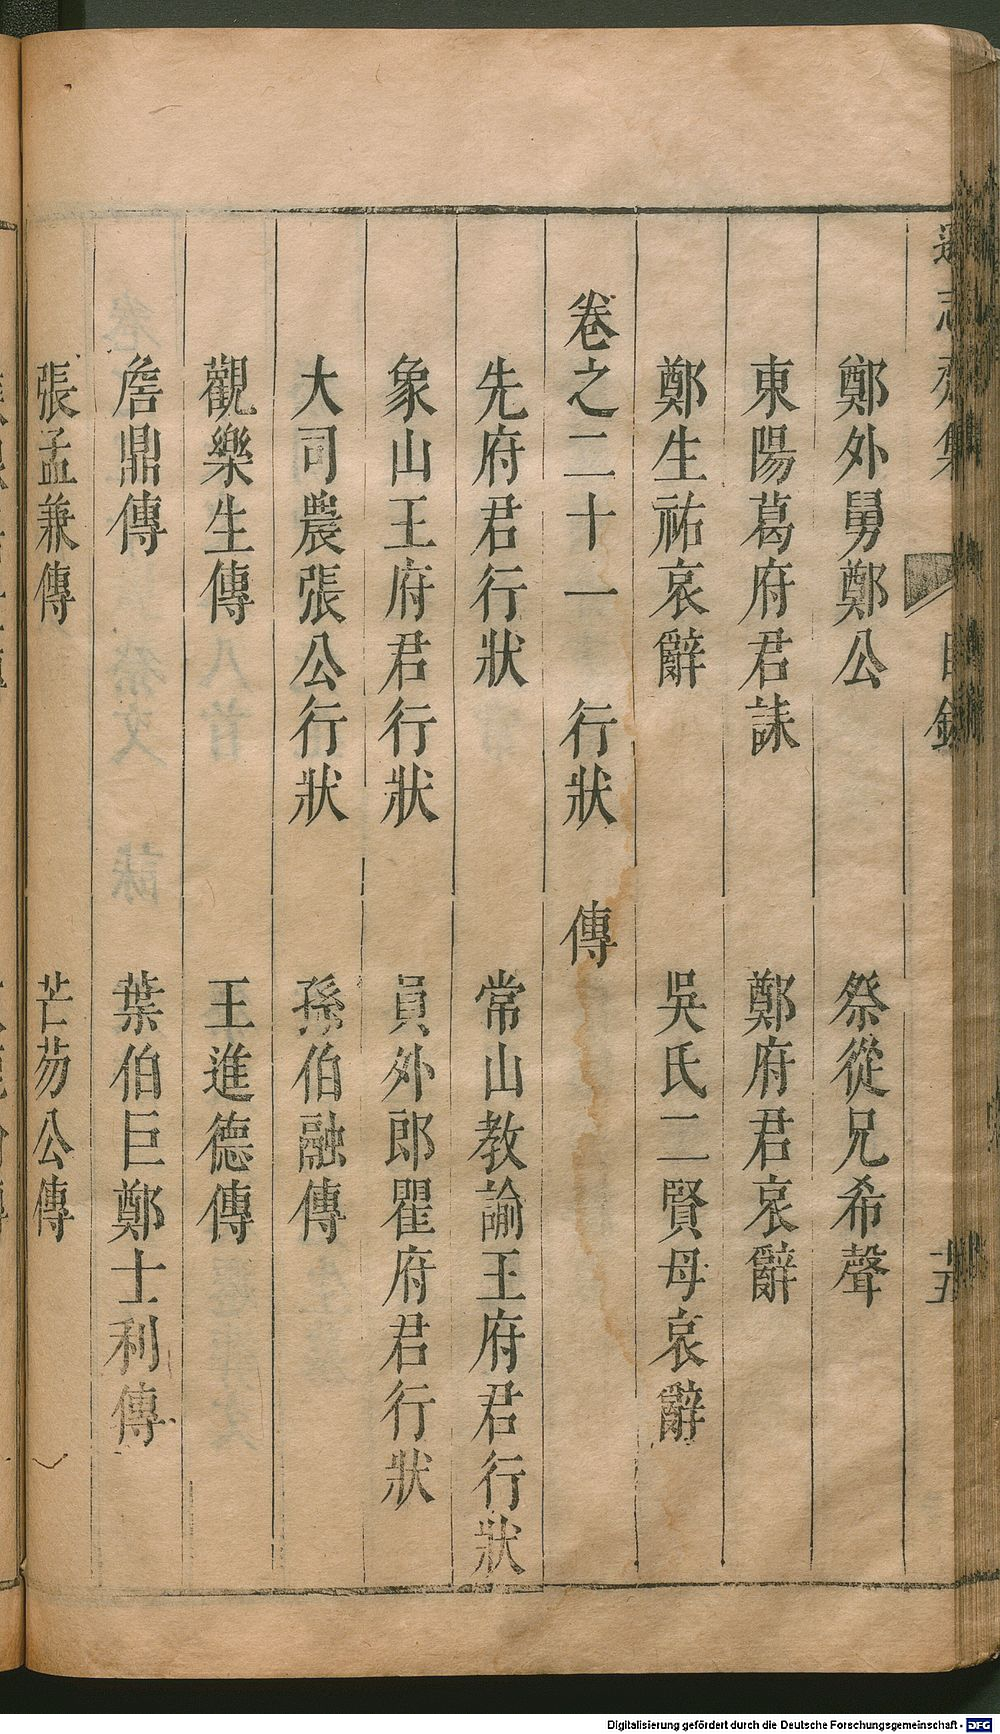 遜志齋集 目錄 廿五
鄭外舅鄭公 祭從兄希聲
東陽葛府君誄 鄭府君哀辭
鄭生祐哀辭 吳氏二賢母哀辭
卷之二十一 行狀 傳
先府君行狀 常山教諭王府君行狀
象山王府君行狀 員外郎瞿府君行狀
大司農張公行狀 孫伯融傳
觀樂生傳 王進德傳
詹鼎傳 葉伯巨鄭士利傳
張孟兼傳 芒芴公傳
Digitalisierung gefördert durch die Deutsche Forschungsgemeinschaft - DFG